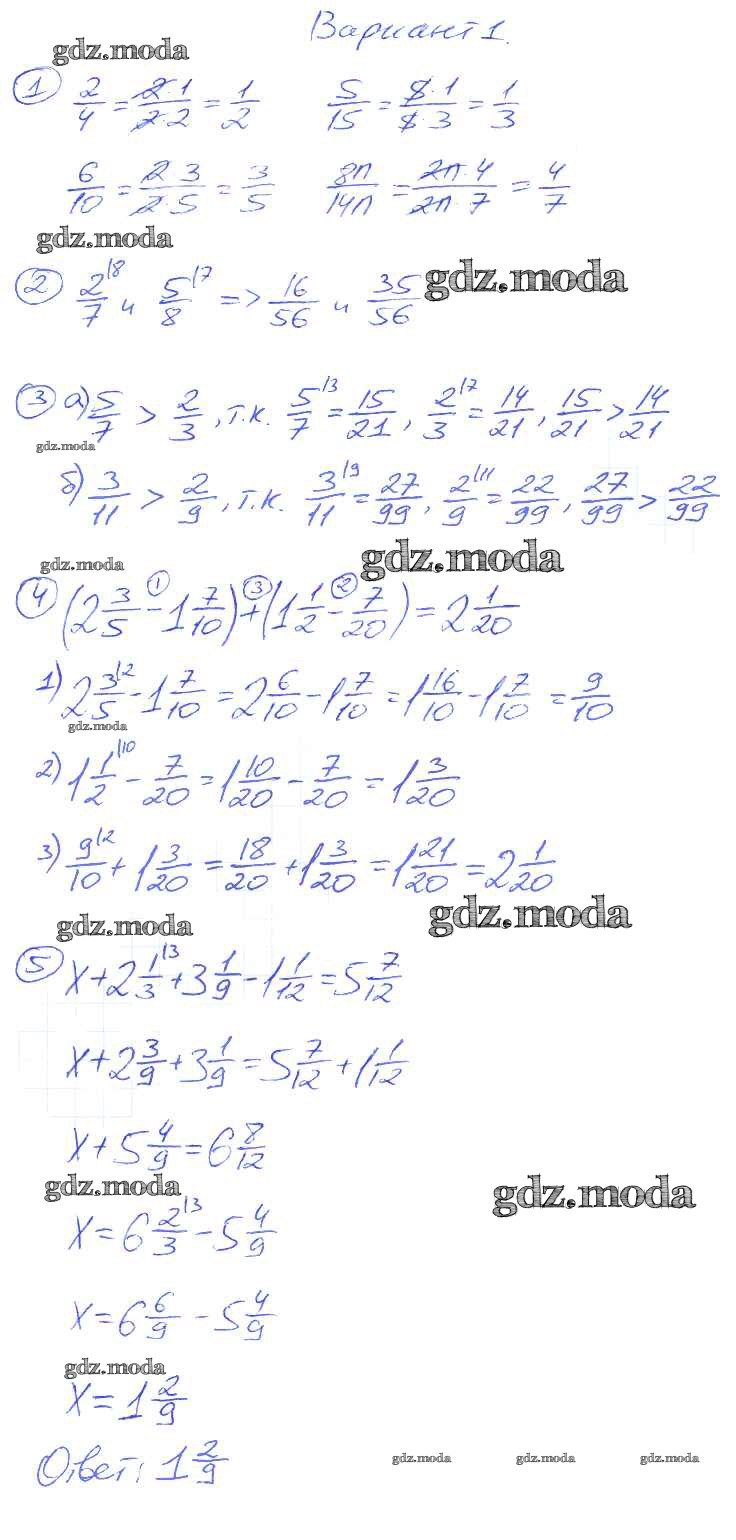 Вариант 1.
gdz.moda
① 2/4 = 2·1/2·2 = 1/2 5/15 = 5·1/5·3 = 1/3
6/10 = 2·3/2·5 = 3/5 8n/14n = 2n·4/2n·7 = 4/7
gdz.moda
② 2/7 |8 и 5/8 |7 => 16/56 и 35/56
gdz.moda
③ а) 5/7 > 2/3, т.к. 5/7 |3 = 15/21, 2/3 |7 = 14/21, 15/21 > 14/21
gdz.moda
б) 3/11 > 2/9, т.к. 3/11 |9 = 27/99, 2/9 |11 = 22/99, 27/99 > 22/99
gdz.moda gdz.moda
④ (2 3/5 -① 1 7/10) +③ (1 1/2 -② 7/20) = 2 1/20
1) 2 3/5 |2 - 1 7/10 = 2 6/10 - 1 7/10 = 1 16/10 - 1 7/10 = 9/10
gdz.moda
2) 1 1/2 |10 - 7/20 = 1 10/20 - 7/20 = 1 3/20
3) 9/10 |2 + 1 3/20 = 18/20 + 1 3/20 = 1 21/20 = 2 1/20
gdz.moda gdz.moda
⑤ x + 2 1/3 |3 + 3 1/9 - 1 1/12 = 5 7/12
x + 2 3/9 + 3 1/9 = 5 7/12 + 1 1/12
x + 5 4/9 = 6 8/12
gdz.moda gdz.moda
x = 6 2/3 |3 - 5 4/9
x = 6 6/9 - 5 4/9
gdz.moda
x = 1 2/9
Ответ: 1 2/9
gdz.moda gdz.moda gdz.moda